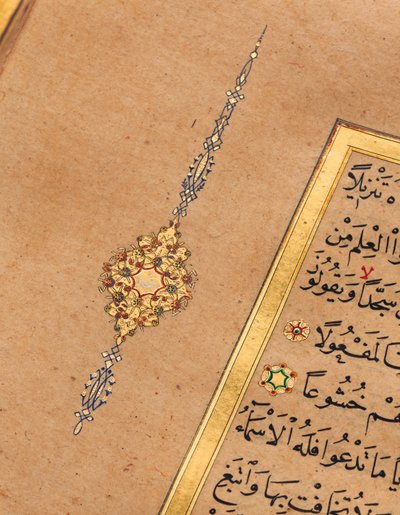 تَنْزِيلًا
الْعِلْمَ مِنْ
سُجَّدًا وَيَقُولُو
لَمَفْعُولًا
هُمْ خُشُوعًا
يًّا مَا تَدْعُوا فَلَهُ الْأَسْمَاءُ
تُخَافِتْ بِهَا وَابْتَغِ